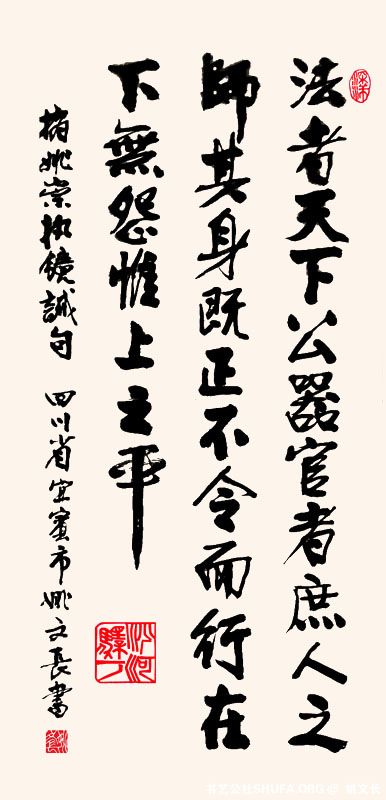 法者天下公器官者庶人之
師其身既正不令而行在
下無怨惟上之平
摘姚崇执鏡誡句 四川省宜賓市姚文長書
书艺公社SHUFA.ORG @ 姚文长